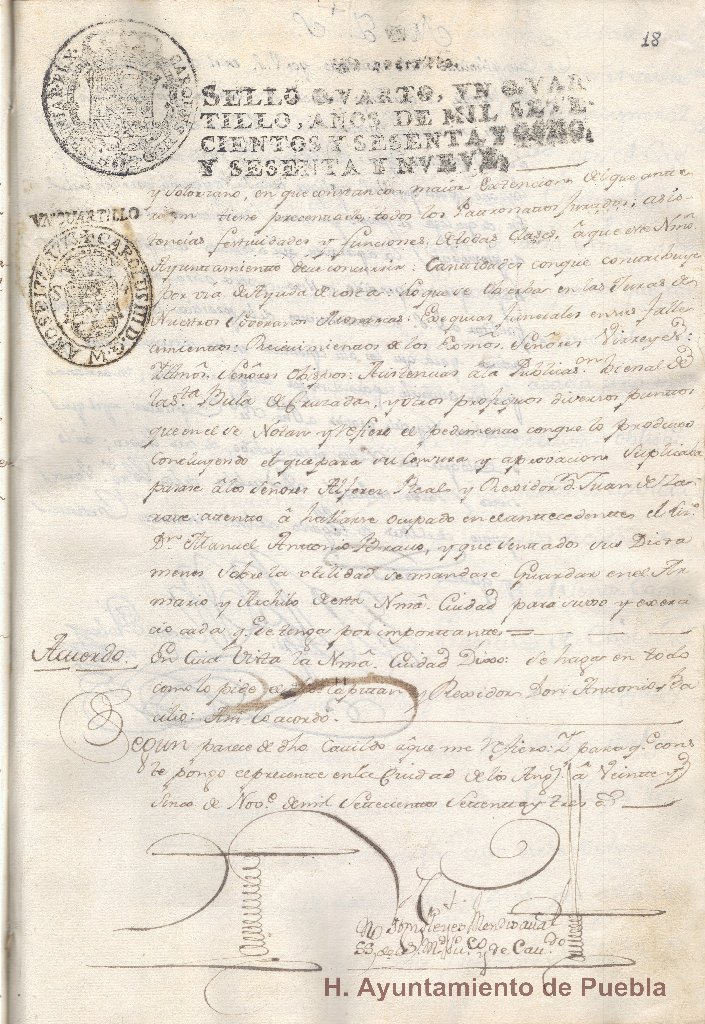 18
SELLO QVARTO, VN QVAR
TILLO, AÑOS DE MIL SETE-
CIENTOS Y SESENTA Y OCHO,
Y SESENTA Y NVEVE,
VN QVARTILLO
y Solorzano, en que constan con maior Extencion, el que ante
tiene precentado, todos los Patronatos Jurados, asis
tencias festividades y funciones, de todas clases, à que este Nmô.
Ayuntamiento deve concurrir: Cantidades con que contribuye
por via de Ayuda de costa: Lo que se observa en las Juras de
Nuestros Soberanos Monarcas: Exequias funerales en sus falle
simientos: Recivimientos de los Exmos. Señores Virreyes:
Illmôs. Señores Obispos: Asistencias a la Publicasn. bienal de
la Sta. Bula de Cruzada, y otros propios diversos puntos
que en el se Notan y refiere el pedimento con que lo produce
Concluyendo el que para su censura y aprovacion Suplicaba
pasase â los Señores Alferes Real y Rexidor Dn. Juan de
atento â hallarse ocupado en el antecedente el Sor.
Dr. Manuel Antonio Bravo, y que sentados sus Dicta
menes sobre la utilidad se mandase Guardar en el Ar
mario y Archibo de esta Nmâ. Ciudad para su uso y exerci
cio cada qe. se tenga por importante =
Acuerdo.
En Cuia Vista la Nmâ. Ciudad Dixo: Se haga en todo
como lo pide el Capitan y Rexidor Don Antonio Ba
cilio: Assi lo acordô.
Segun parece de dho Cavildo âque me refiero: Y para qe. cons
te pongo el precente en la Ciudad de los Angs. â Veinte y
Sinco de Nove. de mil Setecientos Settenta y tres as.